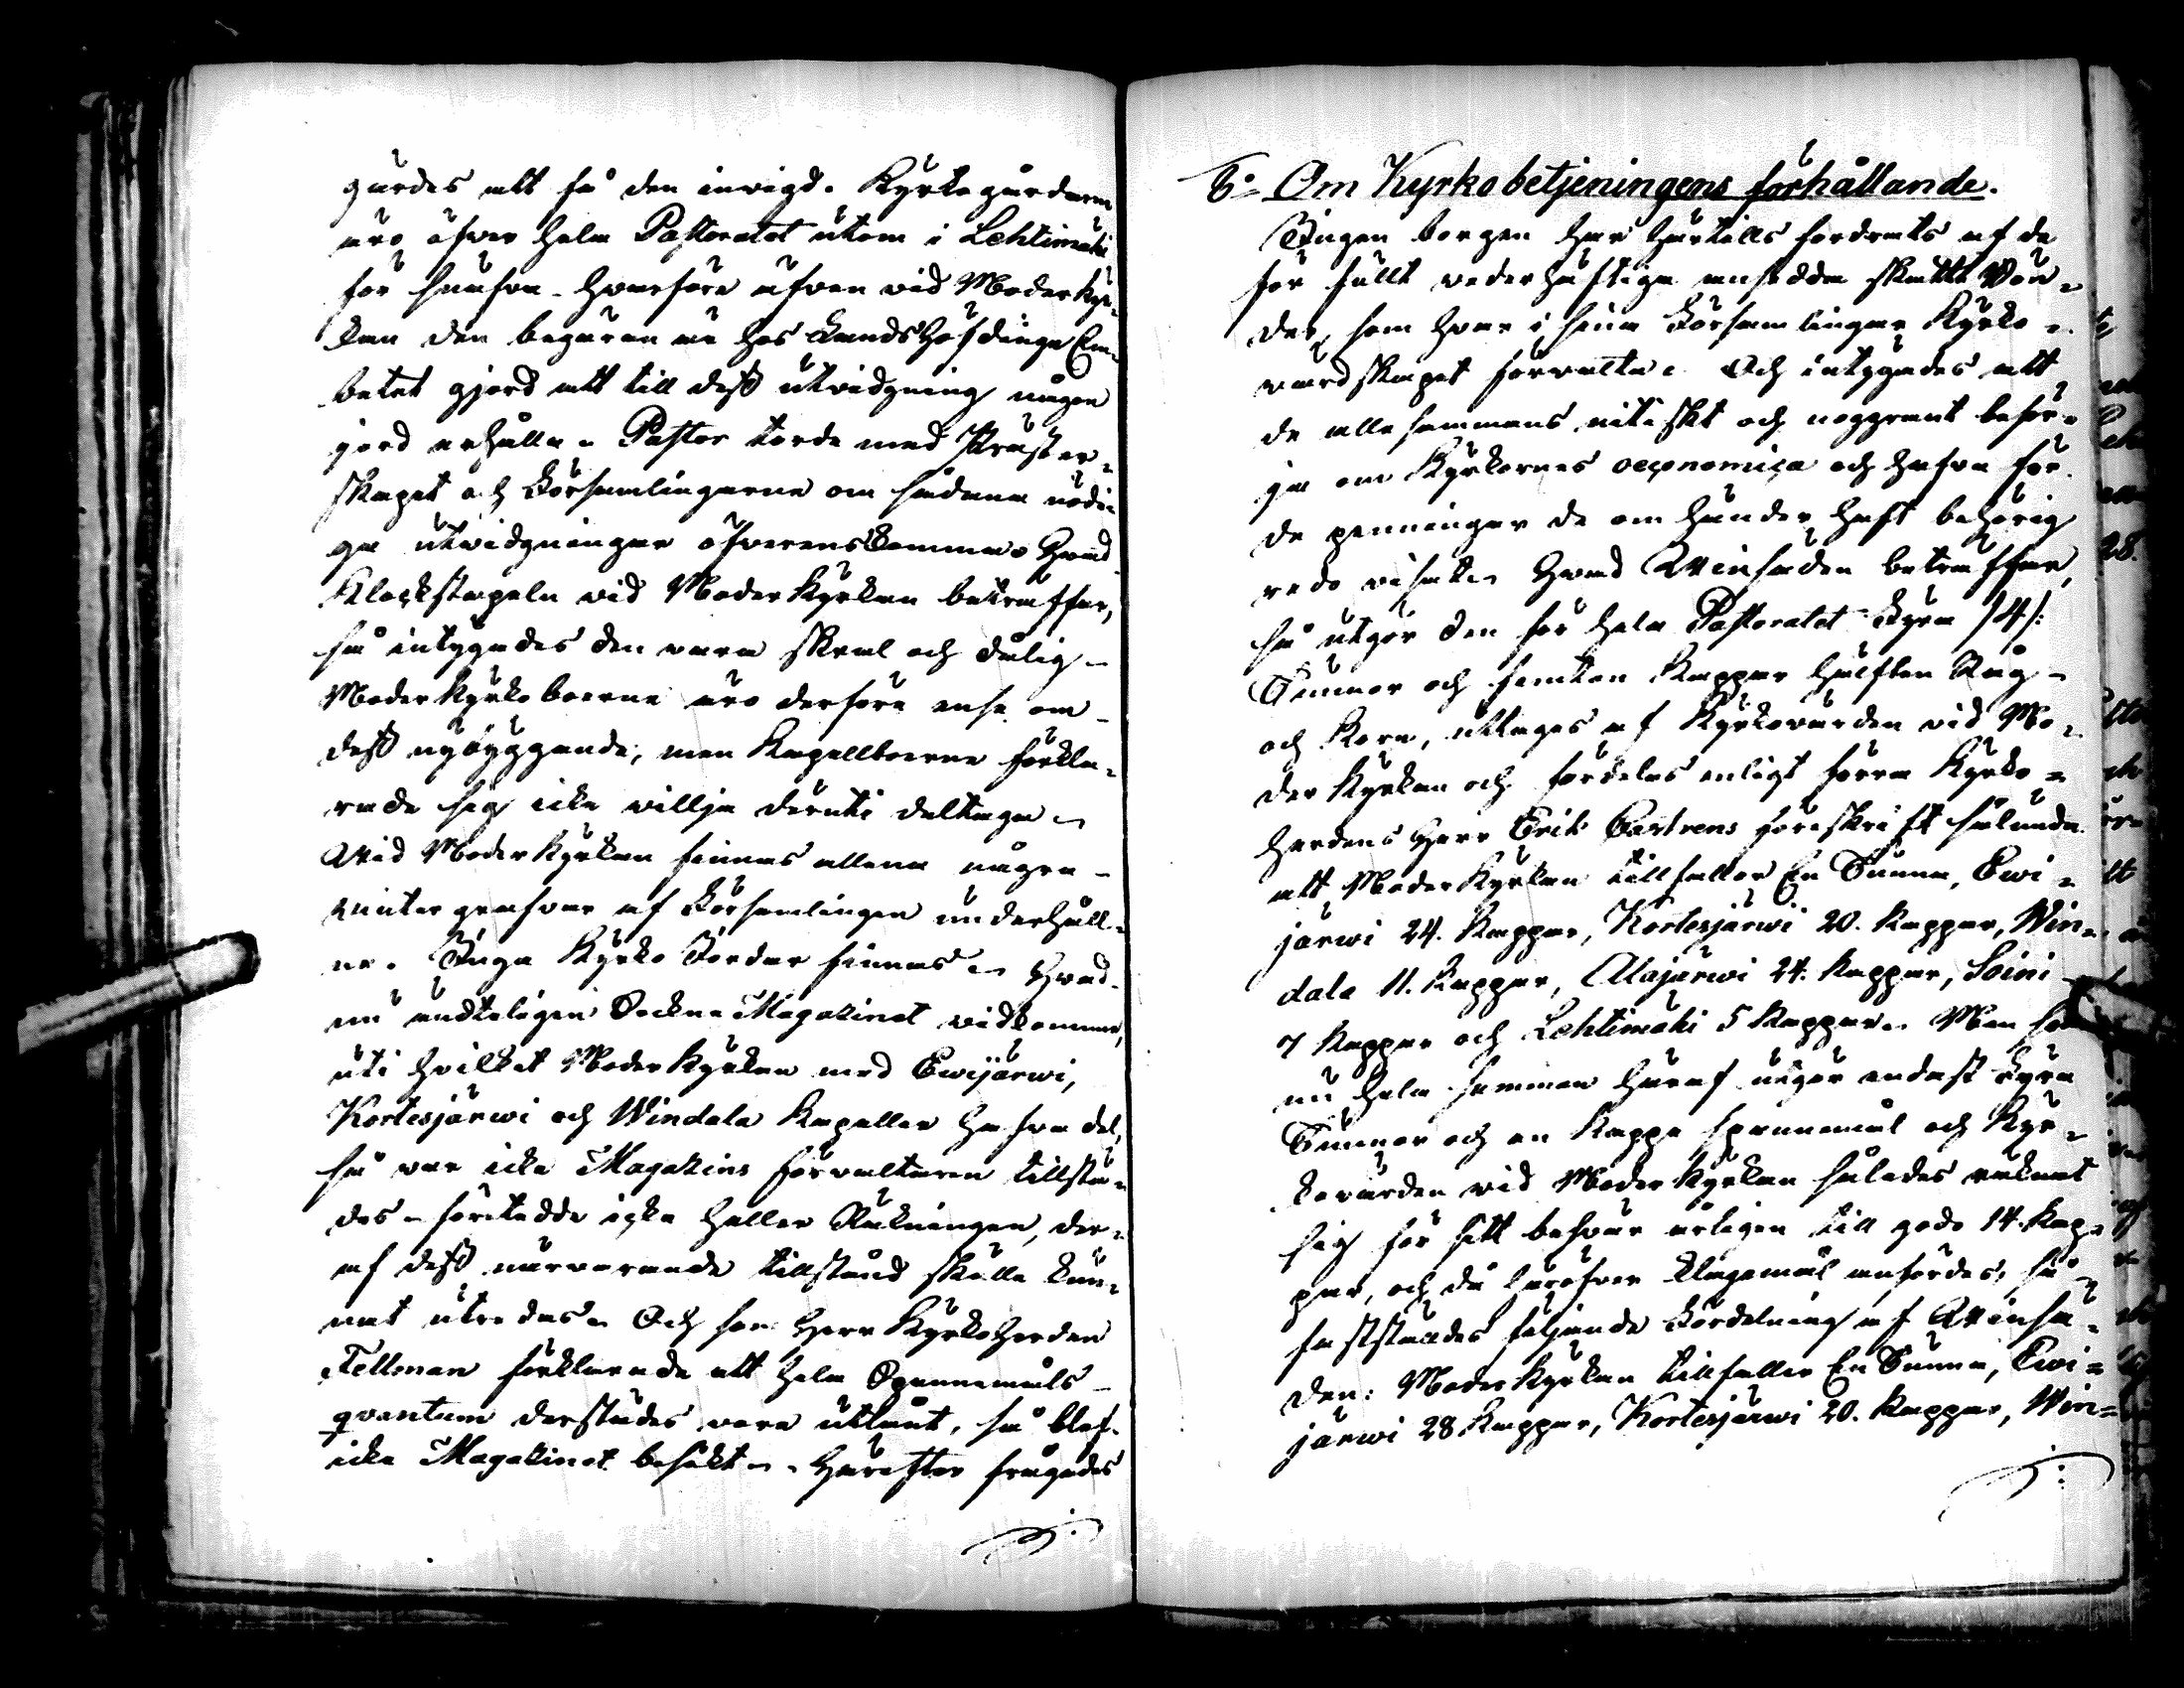 gärdes att få den inwigd. Kyrkogårdarne
äro öfver hela Pastoratet utom i Lehtimäki
för små - hvarföre äfven vid Moderkyr-
kan den begäran är hos LandsHöfdinge Em-
betet gjord att till dess utvidgning någon
jord erhålla. Pastor torde med Präster-
skapet och Församlingarne om sådana nödi-
ga utvidgningar öfverenskomma. Hvad
Klockstapeln vid Moderkyrkan beträffar,
så intygades den vara skral och dålig -
Moderkyrkoboerne äro derföre ense om
dess nybyggande, men Kapellboerne förkla-
rade sig icke villja deruti deltaga.
Wid Moderkyrkan finnas allena några
wintergrafvar af Församlingen underhåll-
ne. Inga Kyrko Jordar finnas. Hvad
nu ändteligen Sockne Magazinet vidkommer,
uti hvilket Moderkyrkan med Ewijärwi,
Kortesjärwi och Windala Kapeller hafva del,
så var icke Magazins förvaltaren tillstä-
des - företedde icke heller Räkningen, der-
af dess närvarande tillstånd skulle kun-
nat utredas. Och som Herr Kyrkoherden
Fellman förklarade att hela Spannemåls-
qvantum derstädes vore utlånt, så blef
icke Magazinet besökt. Härefter frågades
6:o Om Kyrkobetjeningens förhållande.
Ingen borgen har härtills fordrats af de
för fullt vederhäftige ansedde skatte Bön-
der, som hvar i sina Församlingar Kyrko-
wärdskapet förvalta. Och intygades att
de allesammans nitiskt och noggrant besör-
ja om Kyrkornes oeconomica och hafva för
de penningar de om händer haft behörig
redo visat. Hvad Winsäden beträffar,
så utgör den för hela Pastoratet Fyra /4/:
Tunnor och femton Kappar hälften Råg
och Korn, uttages af Kyrkovärden vid Mo-
derkyrkan och fördelas enligt förra Kyrko-
herdens Herr Erik Castrens föreskrift sålunda
att Moderkyrkan tillfaller En Tunna, Ewi-
järwi 24. Kappar, Kortesjärwi 20. Kappar, Win-
dala 11. Kappar, Alajärwi 24. Kappar, Soini
7 Kappar och Lehtimäki 5 Kappar. Men som
nu hela summan häraf utgör endast Fyra
Tunnor och en Kappa spannmål och Kyr-
kovärden vid Moderkyrkan således räknat
sig för sitt besvär årligen till godo 14. Kap-
par, och då häröfver klagomål anfördes, så
fastställdes följande Fördelning af Winsä-
den: Moderkyrkan tillfaller En Tunna, Ewi-
järwi 28 Kappar, Kortesjärwi 20. Kappar, Win-